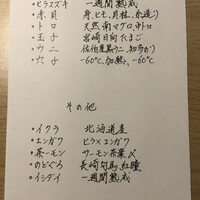 ・ヒラスズキ 一週間熟成
・赤貝 身、ヒモ、貝柱、
・トロ 天然南マグロ、中トロ
・玉子 宮崎日向たまご
・ウニ
・穴子 -60℃、加熱、-60℃
その他
・イクラ 北海道産
・エンガワ ヒラメエンガワ
・茶ーモン サーモン茶葉〆
・のどぐろ 長崎対馬紅瞳
・イシダイ 一週間熟成